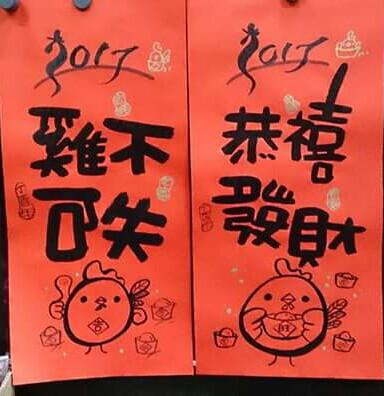 2017
雞不
可失
2017
恭禧
發財